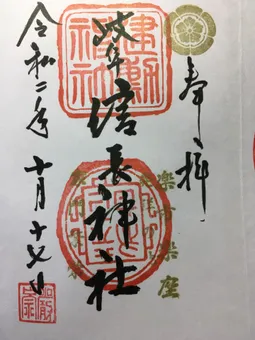 奉拝
岐阜信長神社
建勲神社
楽市楽座
令和二年十月十七日